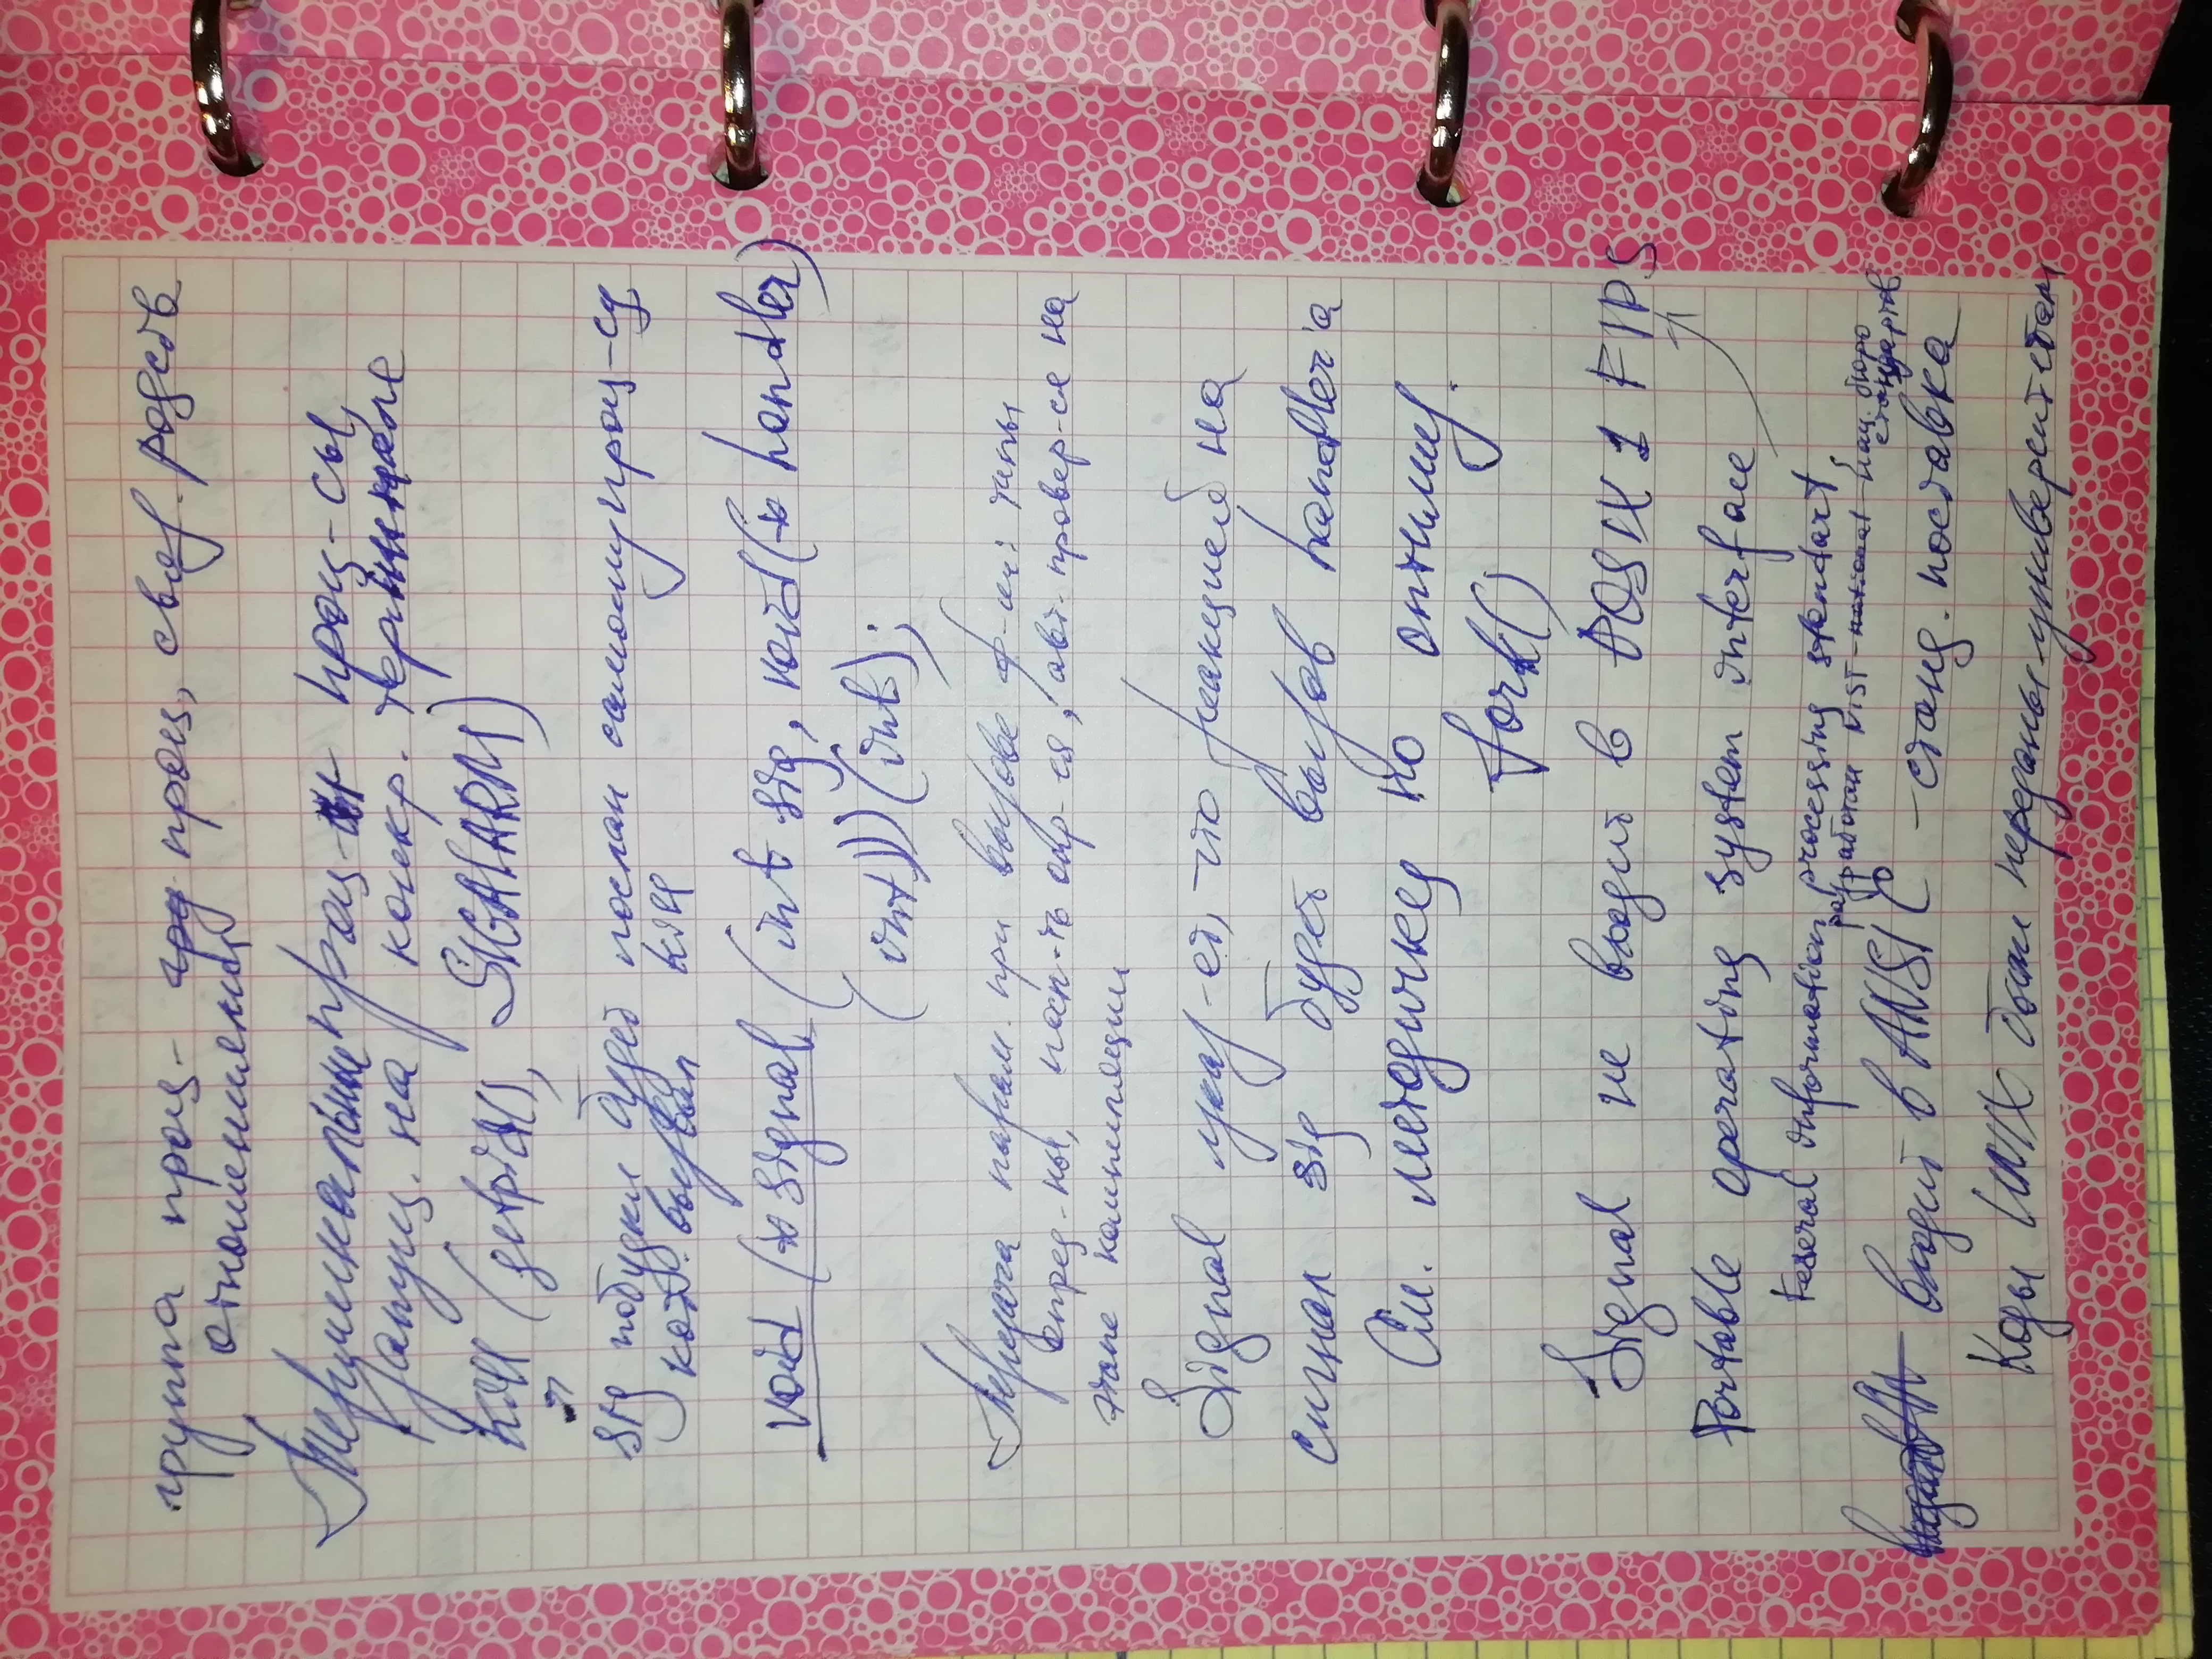 группа проц- проц, связ. родств
отношениями
Терминальные проц-ы проц-сы,
запущ. на конкр. терминале
kill (getpid(), SIGALARM)
sig побудки будет послан самому проц-су,
кот. вызвал kill
void (* signal (int sig, void (* handler)
(int))) (int);
Передача парам. при вызове ф-ии: типы
опред-ны, посл-ть опр-ся, авт. провер-ся на
этапе компиляции
Signal указ-ет, что реакцией на
сигнал sig будет вызов handler'а
См. методичку по оптимиз.
fork()
Signal не входит в POSIX 1 FIPS
Portable operating system interface
Federal information processing standart,
разработан NIST - national нац. бюро
стандартов
входит в ANSI C - станд. поставка
Коды UNIX были переданы университетам